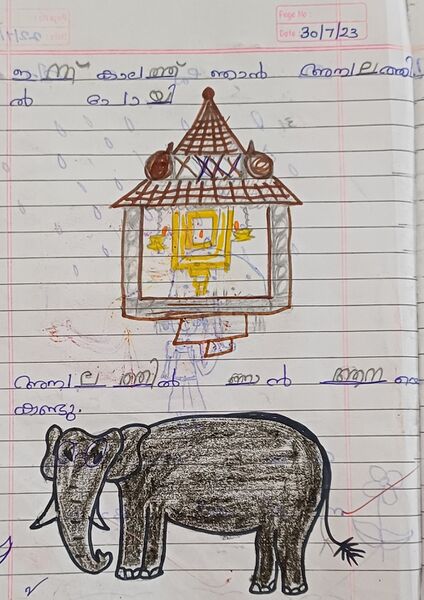 Page No:
Date: 30/7/23
ഇന്ന് കാലത്ത് ഞാൻ അമ്പലത്തി
ൽ പോയി
അമ്പലത്തിൽ ഞാൻ ആനയെ
കണ്ടു.